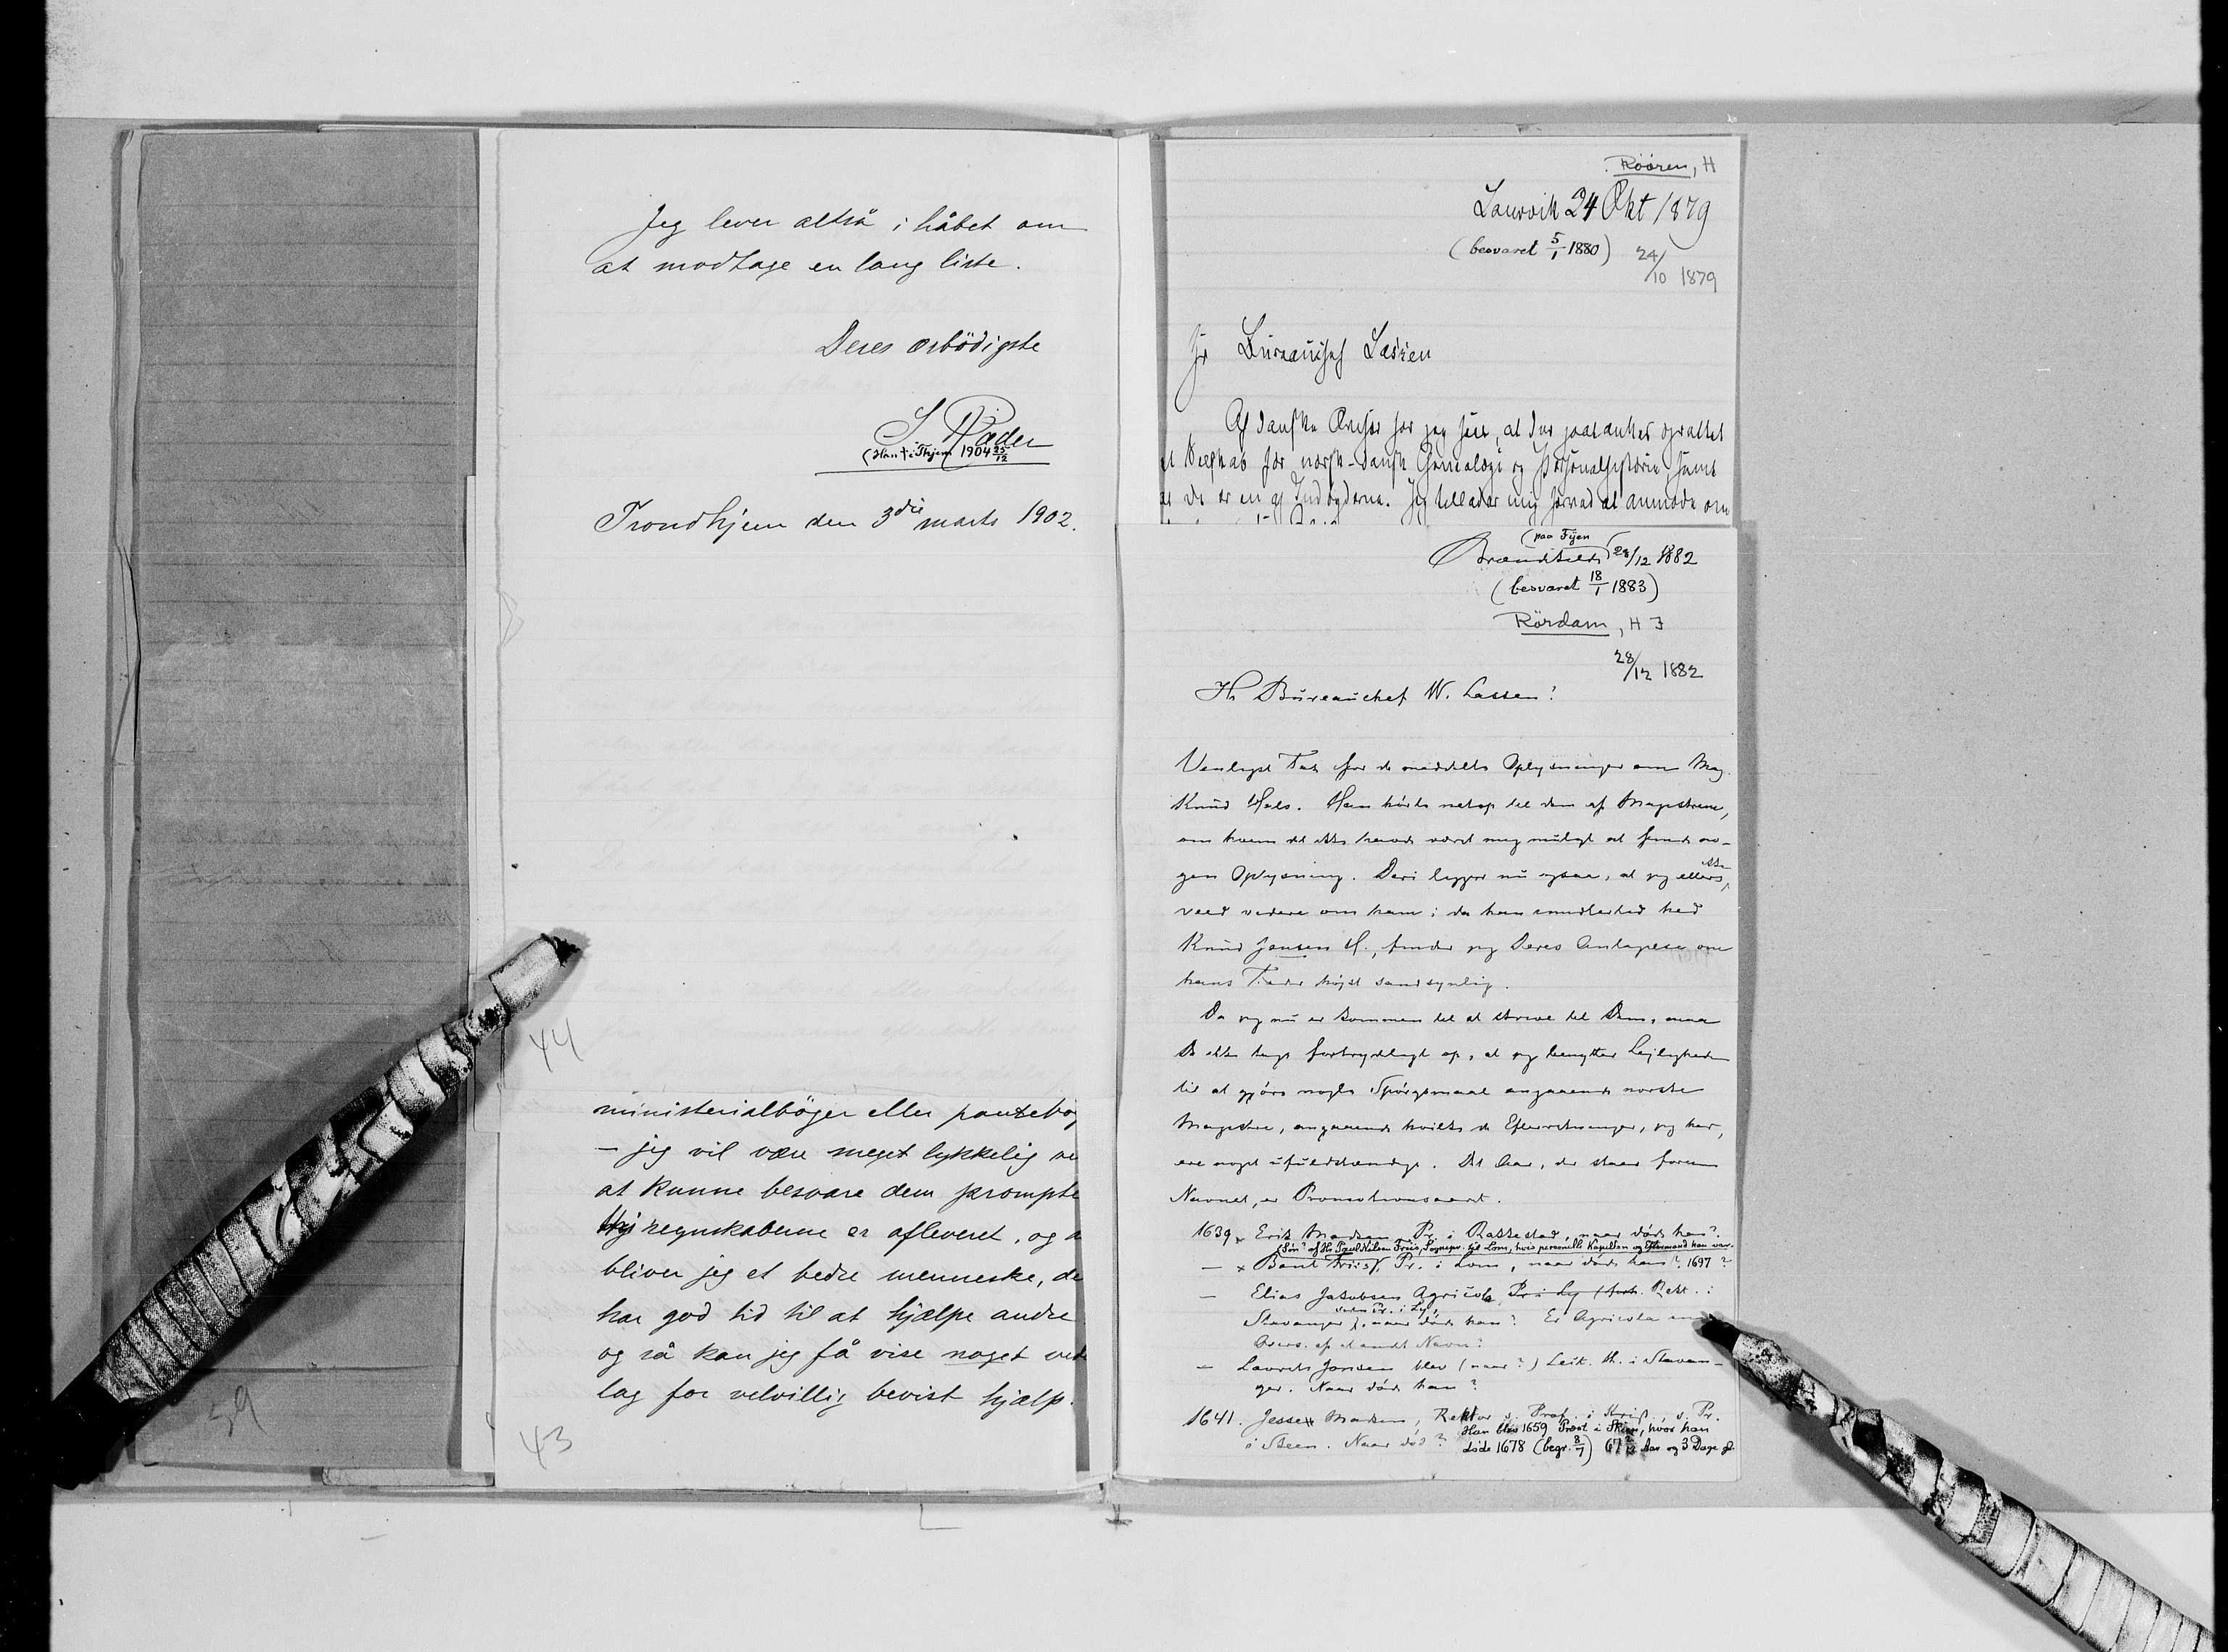 Jeg lever altså i håbet om
at modtage en lang liste.
Deres ærbödigste
S. Ræder
(Han † i Thjem 1904 25/12
Trondhjem den 3die marts 1902.
44
ministerialböger eller pantebög
– jeg vil være meget lykkelig ve
at kunne besvare dem prompte
regnskaberne er afleveret, og
bliver jeg et bedre menneske, de
har god tid til at hjælpe andre
og så kan jeg få vise noget ved
lag for velvillig bevist hjælp.
43
39
Röören, H
Laurvik 24 Okt 1879
(besvaret 5/1 1880)
24/10 1879
Hr Bureauchef Lassen
Af danske Aviser har jeg seet, at der paatænkes oprettet
et Selskab for norsk-dansk Genealogi og Personalhistorie, samt
at De er en af Indbyderne. Jeg tillader mig herved at anmode om
(paa Fyen)
Brændekilde 28/12 1882
(besvaret 18/1 1883)
Rördam, H F
28/12 1882
Hr Bureauchef W. Lassen!
Venligst Tak for de meddelte Oplysninger om Mag.
Knud Hals. Han hörte netop til dem af Magistrene,
om hvem det ikke havde været mig muligt at finde no-
gen Oplysning. Deri ligger nu ogsaa, at jeg ellers ikke
veed videre om ham; da han imidlertid hed
Knud Jensen H., finder jeg Deres Antagelse om
hans Fader højst sandsynlig.
Da jeg nu er kommen til at skrive til Dem, maa
De ikke tage fortrydeligt op, at jeg benytter Lejligheden
til at gjöre nogle Spörgsmaal angaaende norske
Magistre, angaaende hvilke de Efterretninger, jeg har,
ere noget ufuldstændige. Det Aar, der staar foran
Navnet, er Promotionsaaret.
1639 x Erik Madsen, Pr. i Rakkestad, naar döde han?
(Sön? af Hr. Poul Nilsen Friis, Sognepr. til Lom, hvis personelle Kapellan og Eftermand han var.
— x Bent Friis, Pr. i Lom, naar döde han? 1697?
— Elias Jakobsen Agricola, Rekt. i
Stavanger, siden Pr. i Ly, naar döde han? Er Agricola en
Overs. af et andet Navn?
— Laurits Jensen blev (naar?) Lekt. th. i Stavan-
ger. Naar döde han?
1641. Jesse Madsen, Rektor s. Prof. i Krist. s. Pr.
i Skeen. Naar död? Han blev 1659 Præst i Skien, hvor han
döde 1678 (begr. 8/7) 67 Aar og 3 Dage gl.